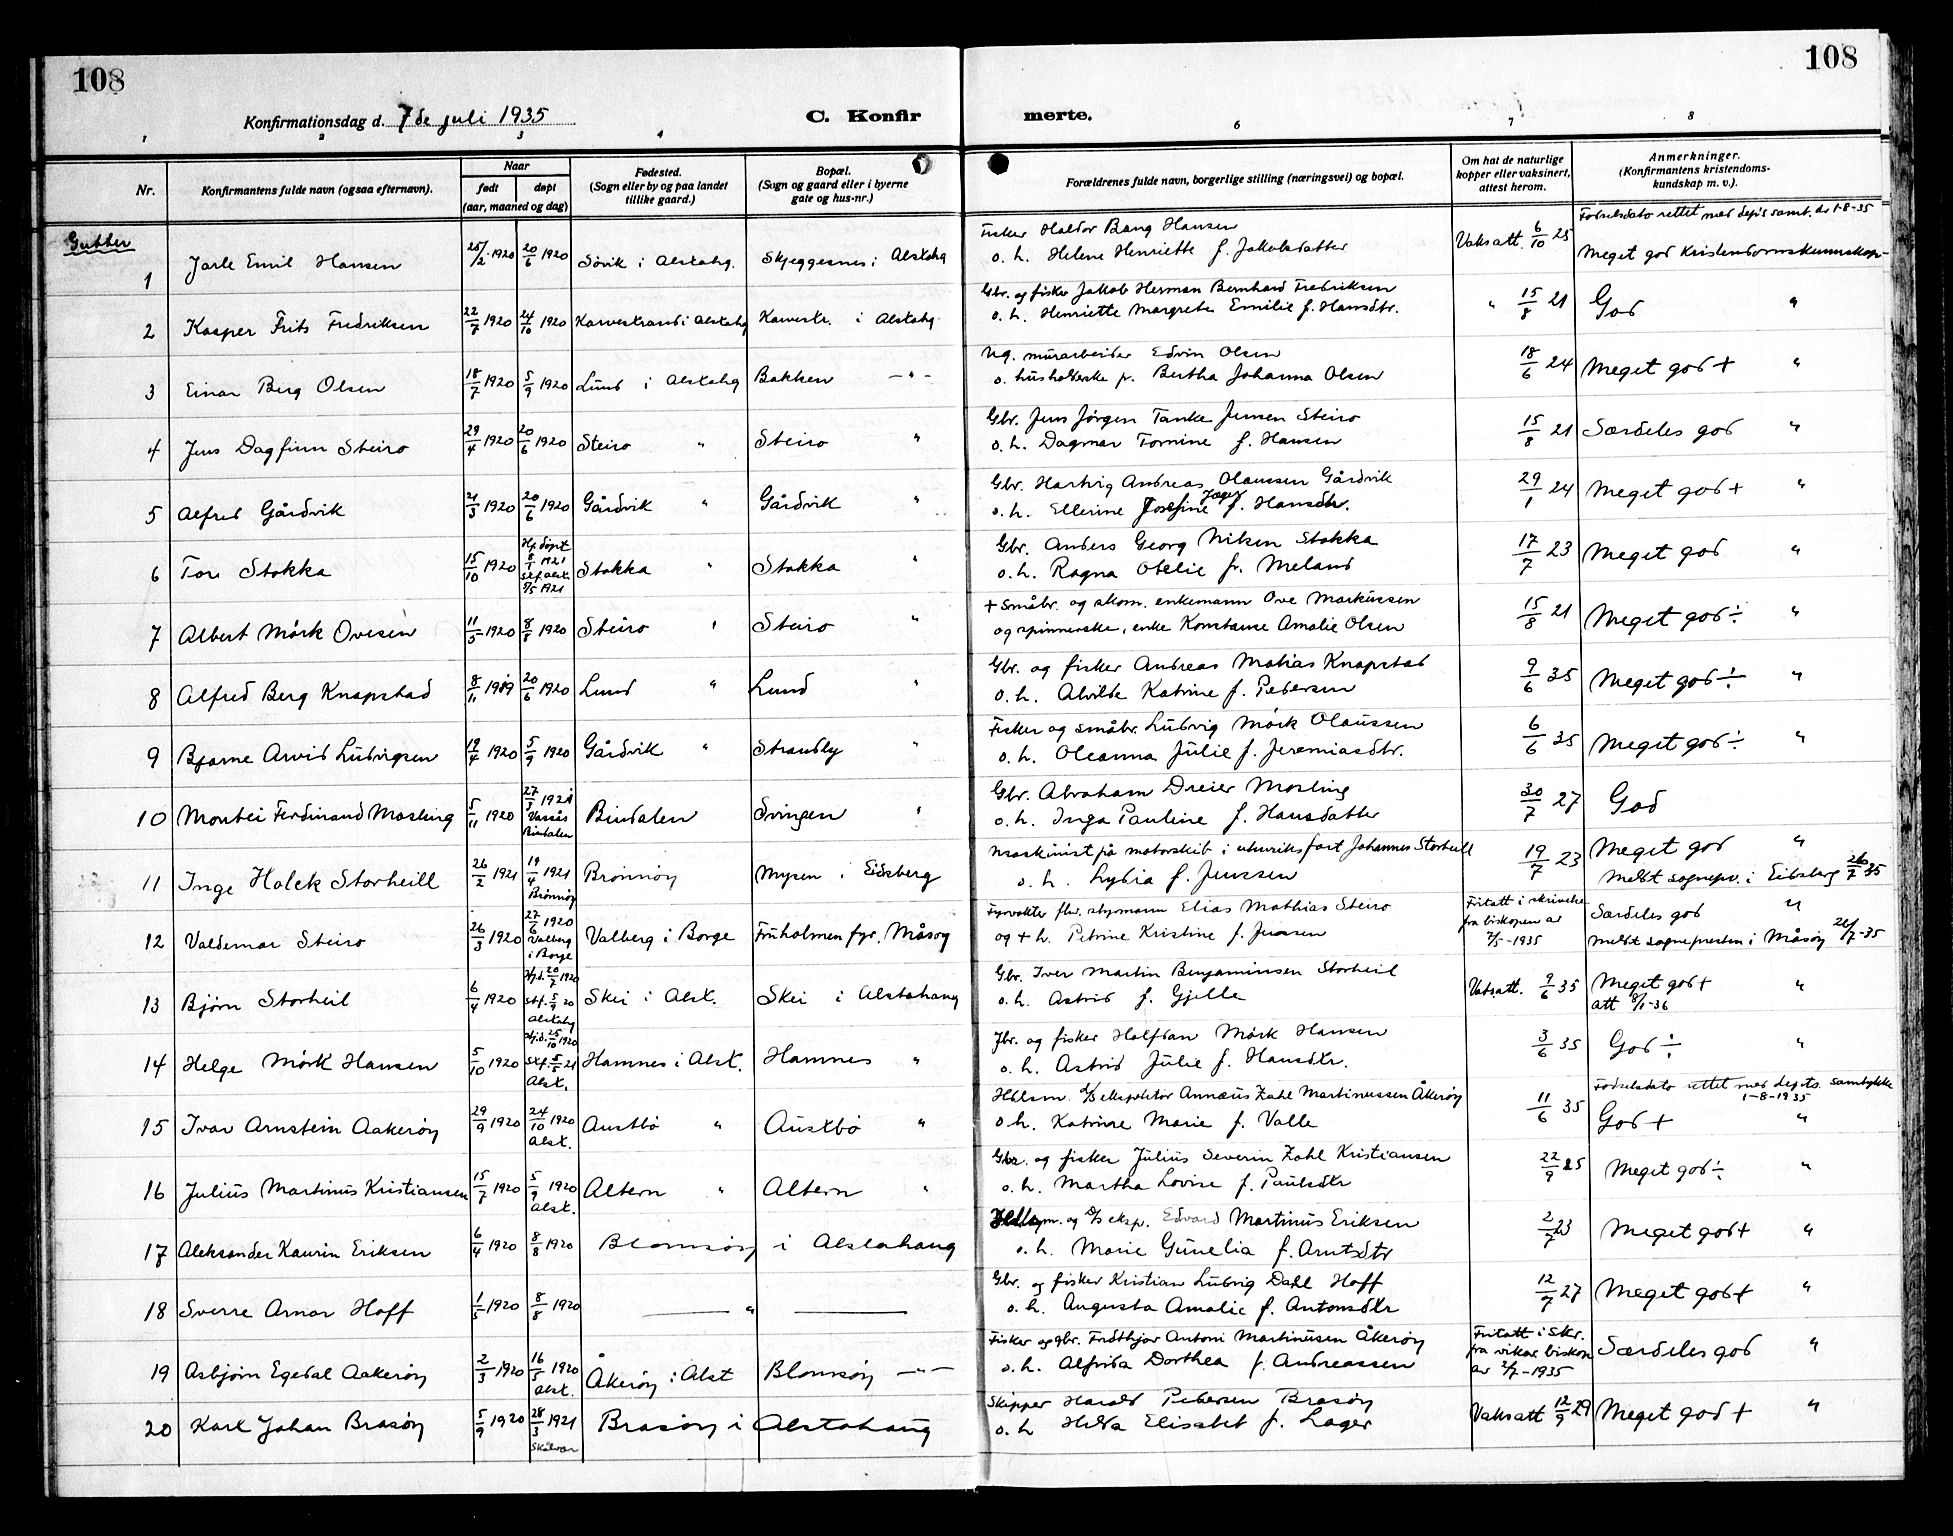 108
108
Konfirmationsdag d. 7de juli 1935
C. Konfirmerte.
1 2 3 4 6 7 8
Nr.
Konfirmantens fulde navn (ogsaa efternavn).
Naar
født døpt
(aar, maaned og dag)
Fødested.
(Sogn eller by og paa landet
tillike gaard.)
Bopæl.
(Sogn og gaard eller i byerne
gate og hus-nr.)
Forældrenes fulde navn, borgerlige stilling (næringsvei) og bopæl.
Om hat de naturlige
kopper eller vaksinert,
attest herom.
Anmerkninger.
(Konfirmantens kristendoms-
kundskap m. v.).
Gutter
Fødselsdato rettet med dep's samt. av 1-8-35
1 Jarle Emil Hansen 25/2 1920 20/6 1920 Søvik i Alstahg. Skjeggesnes i Alstahg
Fisker Haldor Bang Hansen
o. h. Helene Henriette f. Jakobsdatter Vaksatt. 6/10 25 Meget god Kristendomskunnskap
2 Kasper Frits Fredriksen 22/7 1920 24/10 1920 Karvestrand i Alstahg Karvestr. i Alstahg
Gbr. og fisker Jakob Herman Bernhard Fredriksen
o. h. Henriette Margrete Emilie f. Hansdtr. " 15/8 21 God "
3 Einar Berg Olsen 18/7 1920 5/9 1920 Lund i Alstahg Bakken -"-
Ug. murarbeider Edvin Olsen
o. husholderske p. Bertha Johanna Olsen 18/6 24 Meget god + "
4 Jens Dagfinn Steiro 29/4 1920 20/6 1920 Steiro " Steiro "
Gbr. Jens Jörgen Tanke Jensen Steiro
o. h. Dagmar Tomine f. Hansen 15/8 21 Særdeles god "
5 Alfred Gårdvik 21/3 1920 20/6 1920 Gårdvik " Gårdvik "
Gbr. Hartvig Andreas Olaussen Gårdvik
o. h. Ellerine Josefine f. Hansdtr. 29/1 24 Meget god + "
6 Tore Stokka 15/10 1920 Hj. döpt 8/1 1921 Stf. Alst. 7/5 1921 Stokka " Stokka "
Gbr. Anders Georg Nilsen Stokka
o. h. Ragna Otelie f. Meland 17/7 23 Meget god "
7 Albert Mörk Ovesen 11/5 1920 8/8 1920 Steiro " Steiro "
+ Småbr. og skom. enkemann Ove Markussen
og spinnerske, enke Konstanse Amalie Olsen 15/8 21 Meget god ÷ "
8 Alfred Berg Knapstad 8/11 1919 20/6 1920 Lund " Lund "
Gbr. og fisker Andreas Matias Knapstad
o. h. Alvilde Katrine f. Pedersen 9/6 35 Meget god ÷ "
9 Bjarne Arvid Ludvigsen 19/4 1920 5/9 1920 Gårdvik " Strandly "
Fisker og småbr. Ludvig Mörk Olaussen
o. h. Oleanna Julie f. Jeremiasdtr. 6/6 35 Meget god ÷ "
10 Montei Ferdinand Mosling 5/11 1920 27/3 1921 Vassås Bindalen Bindalen Svingen "
Gbr. Abraham Dreier Mosling
o. h. Inga Pauline f. Hansdatter 30/7 27 God
11 Inge Halck Storheill 26/2 1921 19/4 1921 Brönnöy Brönnöy Mysen i Eidsberg
Maskinist på motorskib i utenriksfart Johannes Storheill
o. h. Lydia f. Jenssen 19/7 23 Meget god "
Meldt sognepr. i Eidsberg 26/7 35
12 Valdemar Steiro 26/3 1920 27/6 1920 Valberg i Borge Valberg i Borge Fruholmen fyr, Måsöy
Fyrvokter fhv. styrmann Elias Mathias Steiro
og + h. Petrine Kristine f. Jensen Fritatt i skrivelse
fra biskopen av
7/5-1935 Særdeles god "
Meldt sognepresten i Måsöy 26/7-35
13 Bjørn Storheil 6/4 1920 Hj.d. 20/7 1920 Stf. 5/9 20 Alstahg Skei i Alst. Skei i Alstahaug
Gbr. Iver Martin Benjaminsen Storheil
o. h. Astrid f. Gjelle Vaksatt. 9/6 35 Meget god + "
Att 8/1-36
14 Helge Mörk Hansen 5/10 1920 Hj.d. 25/10 1920 Stf. 5/5 21 Alst. Hamnes i Alst. Hamnes "
Jbr. og fisker Halfdan Mörk Hansen
o. h. Astrid Julie f. Hansdtr. 3/6 35 God ÷ "
Fødselsdato rettet med depts. samtykke
1-8-1935
15 Ivar Arnstein Aakeröy 29/9 1920 24/10 1920 Alst. Austbö " Austbö "
Hdlsm. d/s ekspeditör Annæus Zahl Martinussen Åkeröy
o h. Katrine Marie f. Valle 11/6 35 God + "
16 Julius Martinus Kristiansen 15/7 1920 5/9 1920 Alst. Altern " Altern "
Gbr. og fisker Julius Severin Zahl Kristiansen
o. h. Martha Lovise f. Paulsdtr 22/9 25 Meget god ÷ "
17 Aleksander Kaurin Eriksen 6/4 1920 8/8 1920 Blomsöy i Alstahaug
og d/s eksp. Edvard Martinus Eriksen
o. h. Marie Gunelia f. Arntsdtr 2/7 23 Meget god + "
18 Sverre Arnar Hoff 1/5 1920 8/8 1920 — " —
Gbr. og fisker Kristian Ludvig Dahl Hoff
o. h. Augusta Amalie f. Antonsdtr 12/7 27 Meget god + "
19 Asbjörn Egedal Aakeröy 2/3 1920 16/5 1920 Alst. Åkeröy i Alst Blomsöy —"—
Fisker og gbr. Fridthjov Antoni Martinusen Åkeröy
o. h. Alfrida Dorthea f. Andreassen Fritatt i skr.
fra vikar. biskop
av 2/7-1935 Særdeles god "
20 Karl Johan Brasöy 5/9 1920 28/3 1921 Skålvær Brasöy i Alstahaug
Skipper Harald Petersen Brasöy
o. h Hilda Elisabet f. Lager Vaksatt 12/9 29 Meget god + "